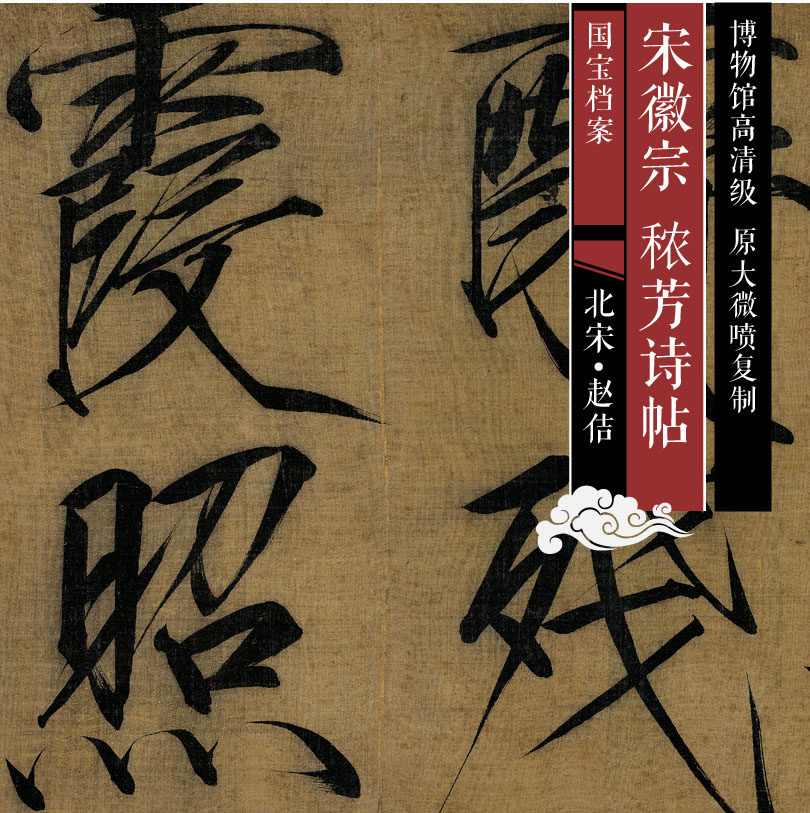 博物馆高清级 原大微喷复制
宋徽宗 秾芳诗帖
国宝档案
北宋·赵佶
殘
霞照